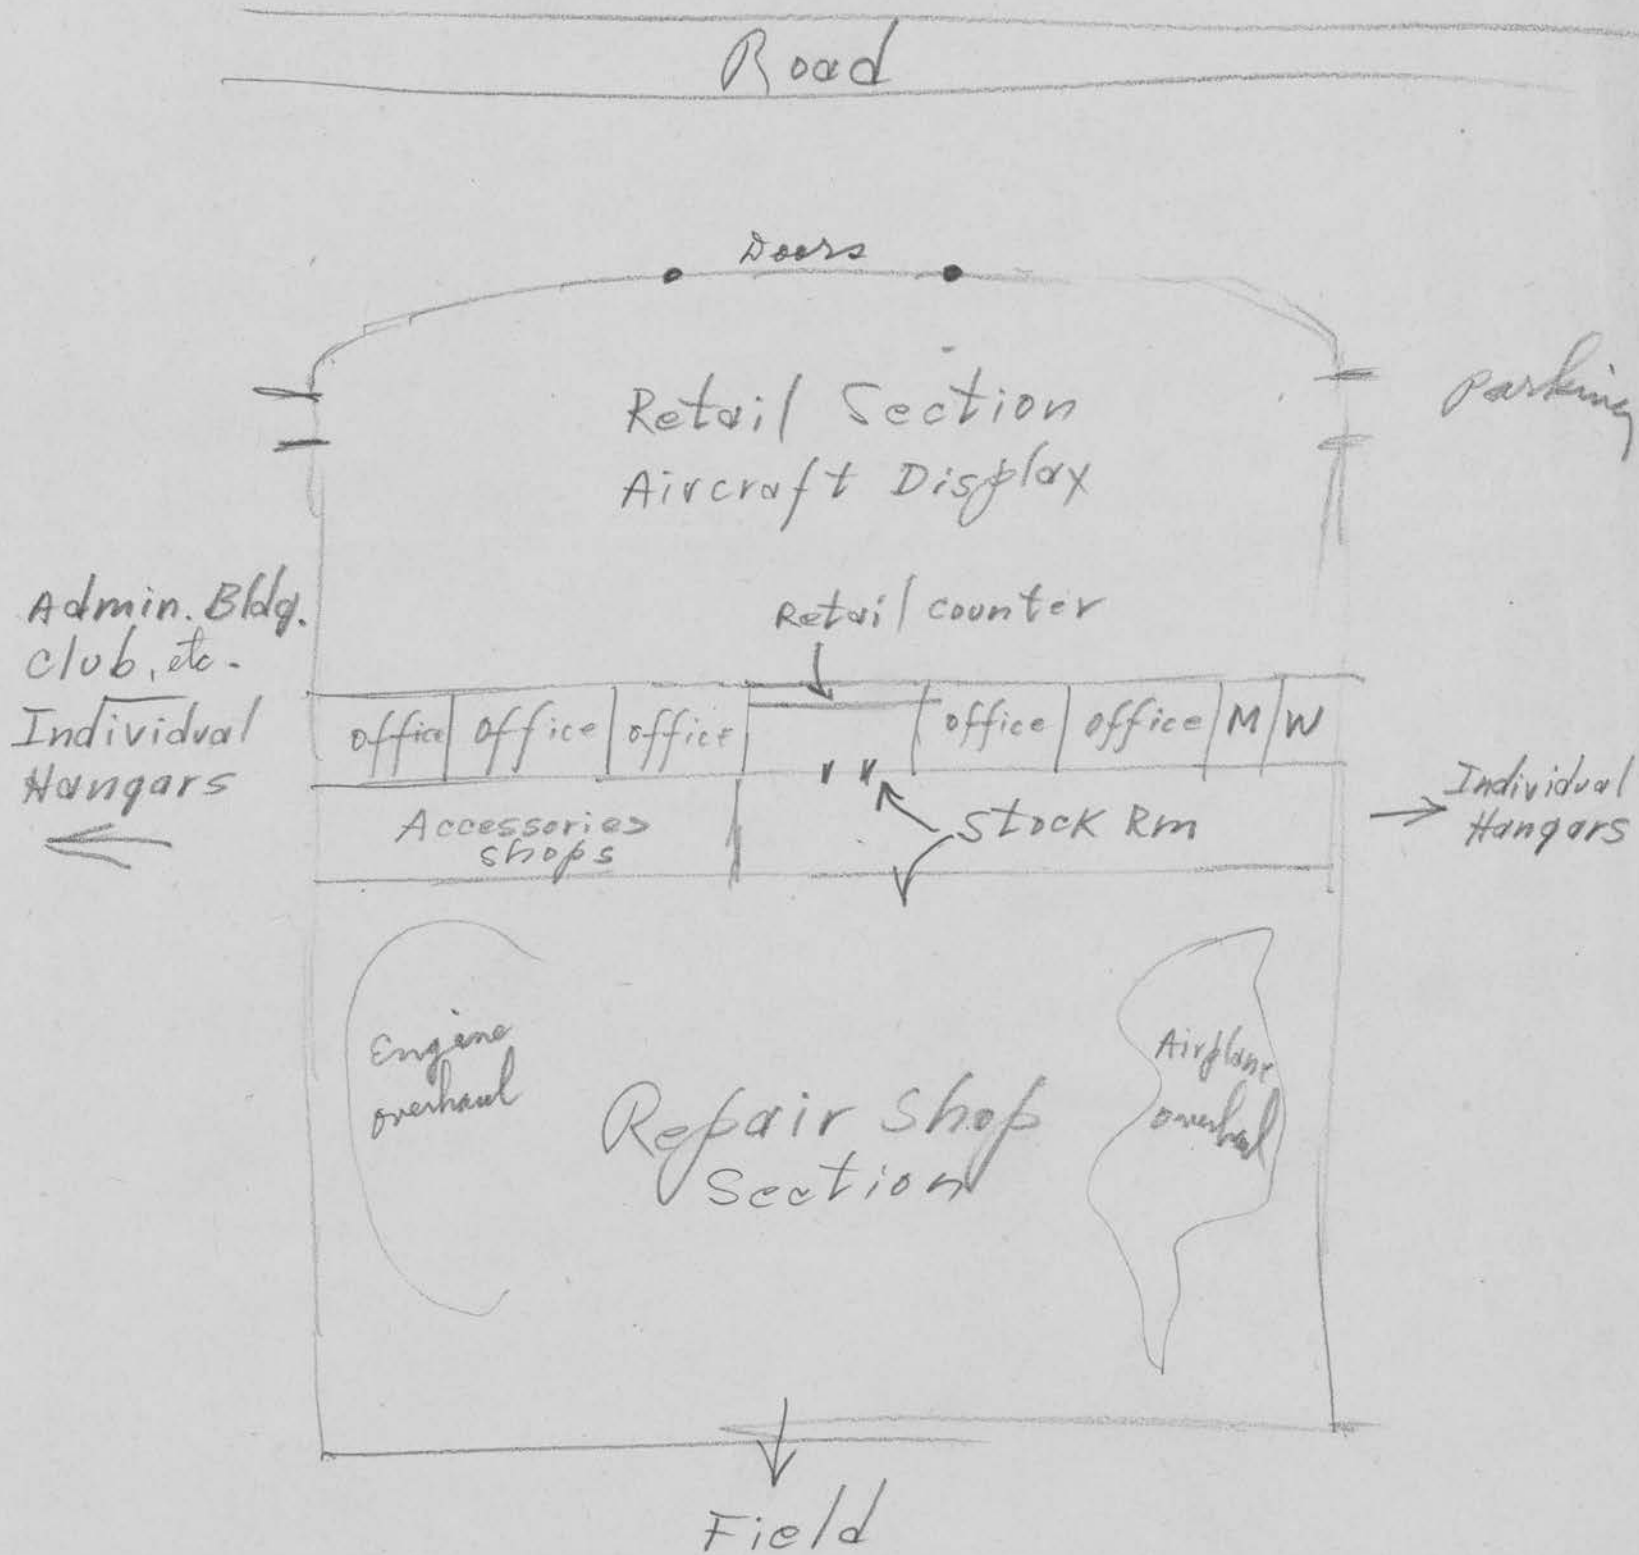 Road
Doors
Retail Section
Aircraft Display
Parking
Admin. Bldg.
Club, etc.
Individual
Hangars
Retail counter
office office office office office M W
Accessories
shops
Stock Rm
Individual
Hangars
Engine
overhaul
Airplane
overhaul
Repair Shop
Section
Field